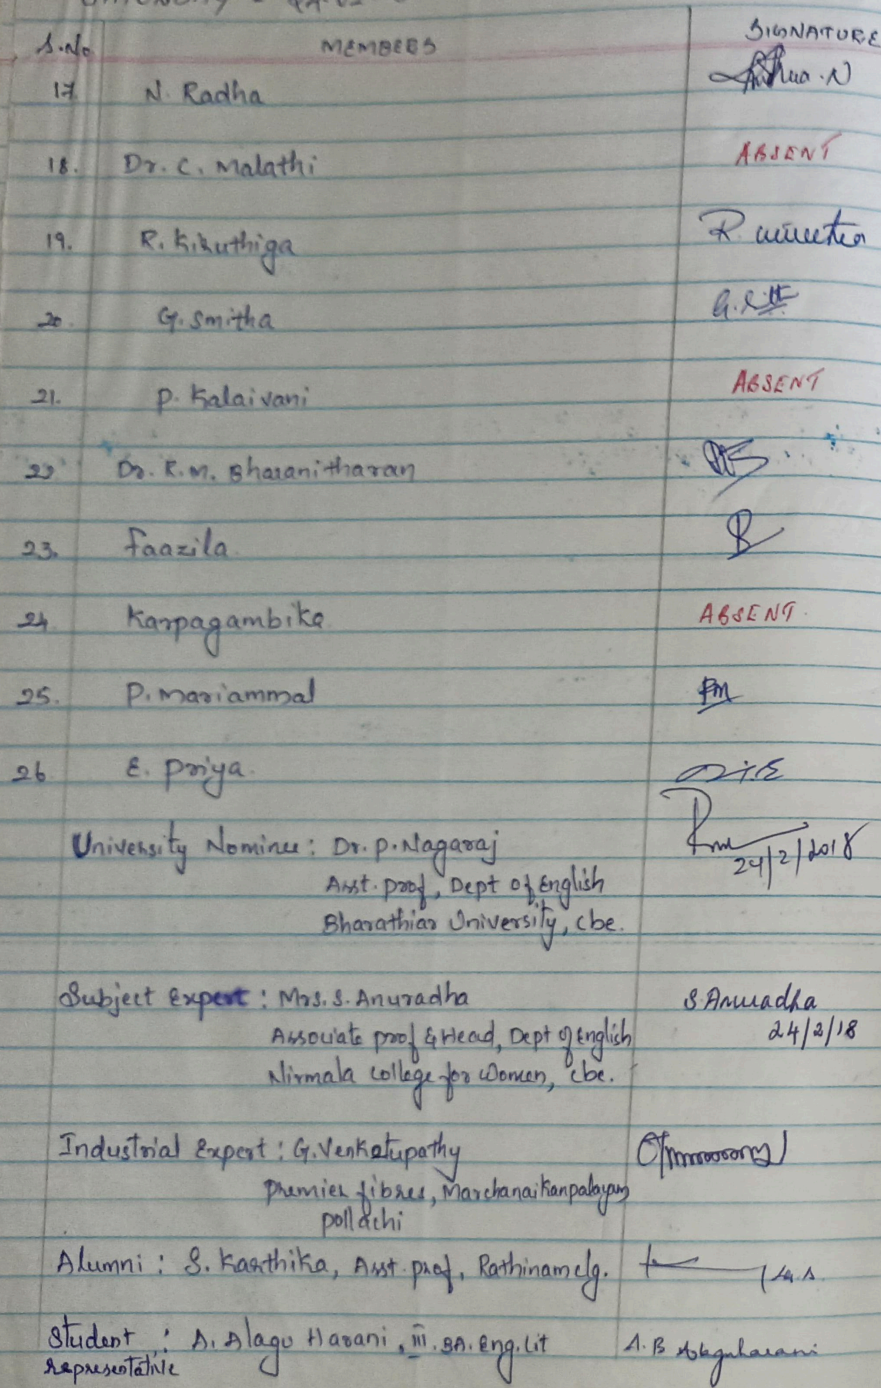 S.No MEMBERS SIGNATURE
17 N. Radha
18. Dr. C. Malathi ABSENT
19. R. Kiruthiga
20. G. Smitha
21. P. Kalaivani ABSENT
22 Dr. R.M. Bharanitharan
23. Faazila
24 Karpagambika ABSENT
25. P. Mariammal PM
26 E. Priya
University Nominee: Dr. P. Nagaraj 24/2/2018
Asst. Prof, Dept of English
Bharathiar University, Cbe.
Subject Expert: Mrs. S. Anuradha S. Anuradha
Associate prof & Head, Dept of English 24/2/18
Nirmala College for Women, Cbe.
Industrial Expert: G. Venkatupathy
Premier fibres, Marchanaikanpalayam
Pollachi
Alumni: S. Karthika, Asst. prof, Rathinam clg.
Student : A. Alagu Harani, III. BA. Eng. Lit A. B Alaguharani
representative